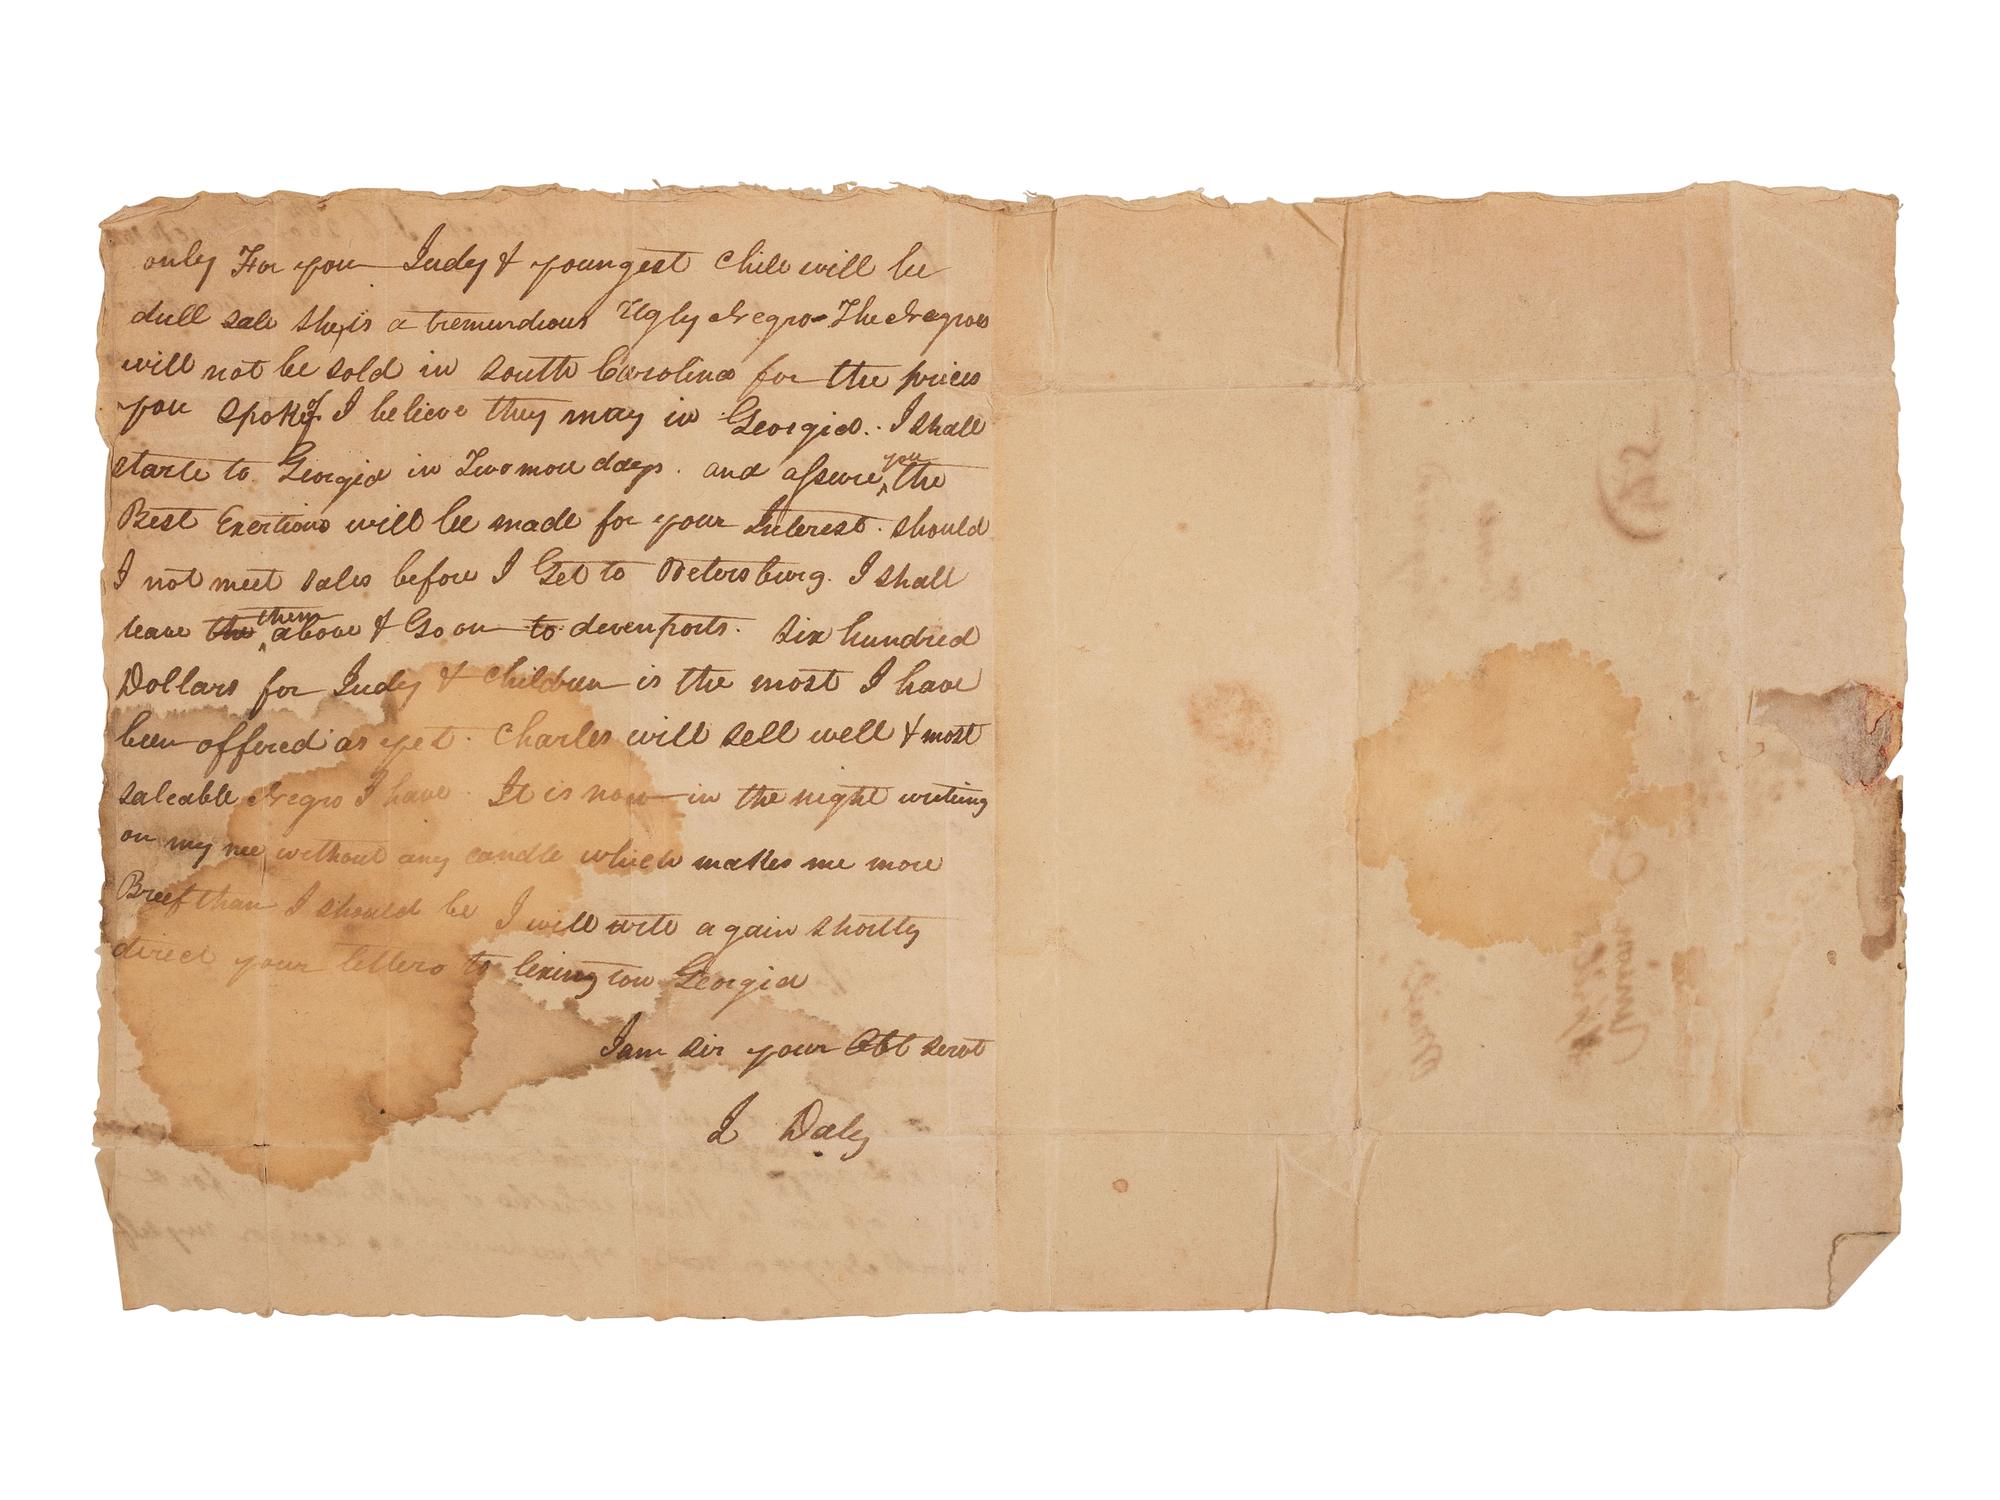 only For you Judy & youngest Chile will be
dull sale she is a tremendious Ugly Negro - The Negroes
will not be sold in South Carolina for the prices
you spoke of I believe they may in Georgia. I shall
starte to Georgia in Two more days. and assure you the
Best Exertions will be made for your Interest. should
I not meet sales before I Get to Petersburg. I shall
leave the them above & Go on to devenports. Six hundred
Dollars for Judy & Children is the most I have
been offered as yet. Charles will sell well & most
saleable Negro I have. It is now in the night writing
on my nee without any candle which makes me more
Breef than I should be I will write again shortly
direct your letters to lexington Georgia
I am sir your Obt servt
J Daly